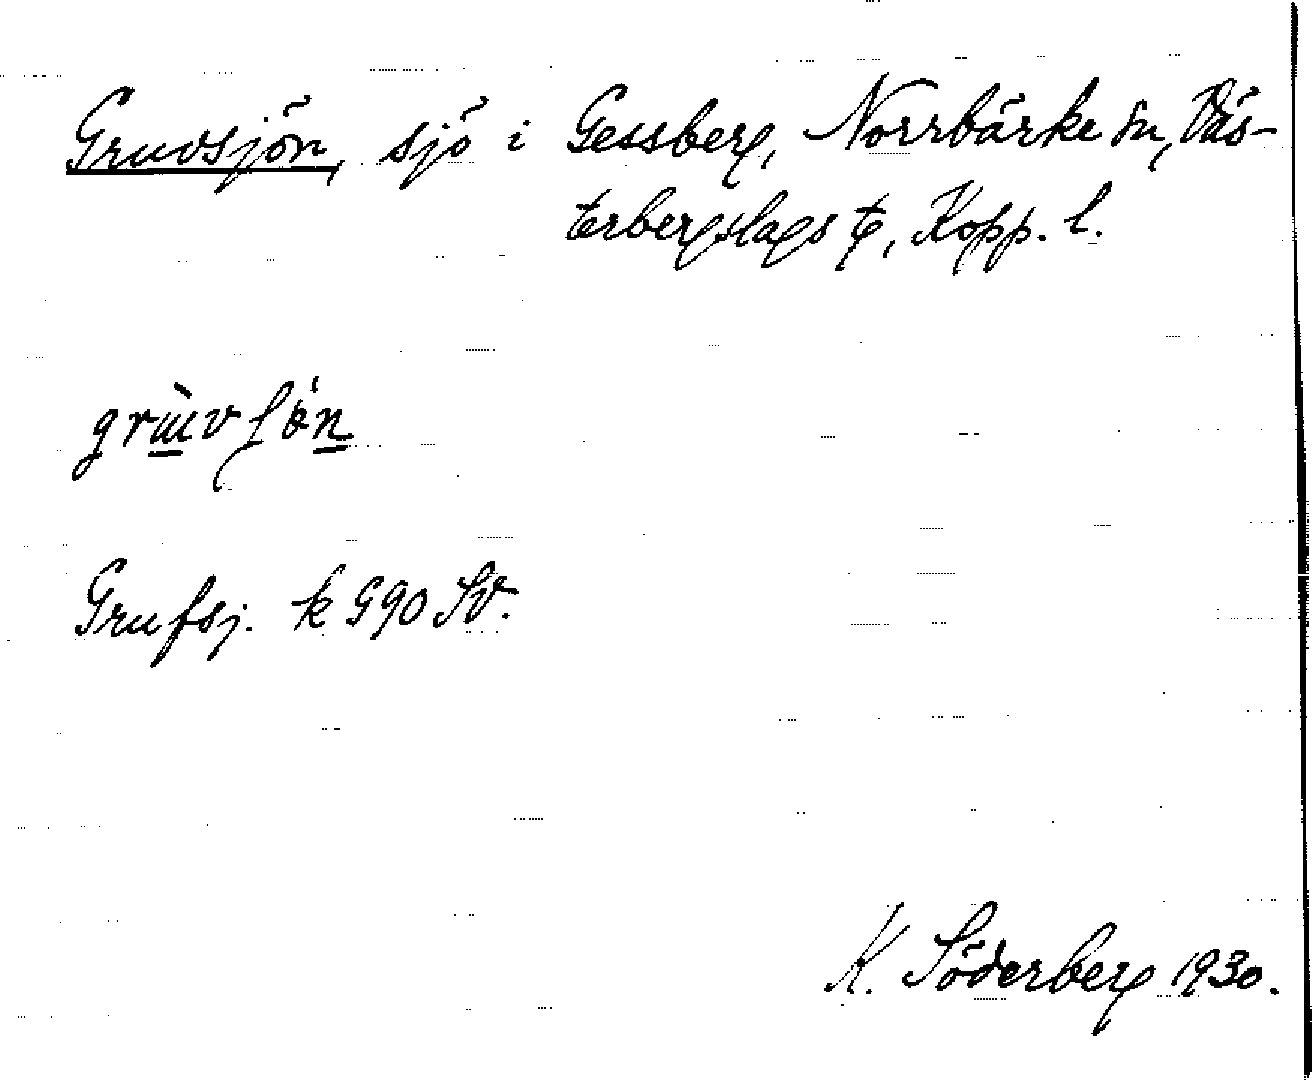 Gruvsjön, sjö i Gessberg, Norrbärke sn, Väs-
terbergslags tg, Kopp. l.
Grufsj. k G90 SV.
K. Söderberg 1930.